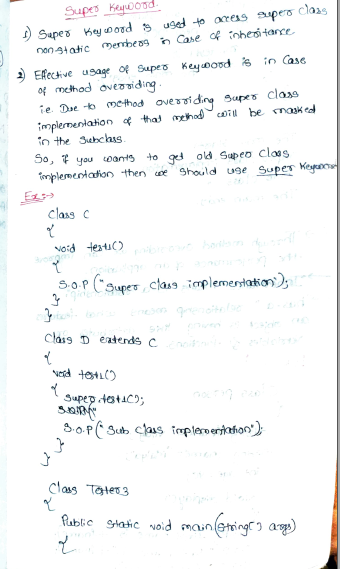 Super Keyword.
1) Super Keyword is used to acess super class
non static members in Case of inheritance.
2) Effective usage of Super Keyword is in Case
of method overriding.
i.e. Due to method overriding super class
implementation of that method will be masked
in the Subclass.
So, if you wants to get old Super Class
implementation then we should use Super Keyword
Ex:→
Class C
{
void test1()
{
S.O.P ("Super class implementation");
}
}
Class D extends C
{
void test1()
{
super.test1();
S.O.P ("Sub class implementation");
}
}
Class Tester3
{
Public static void main(String[] args)
{